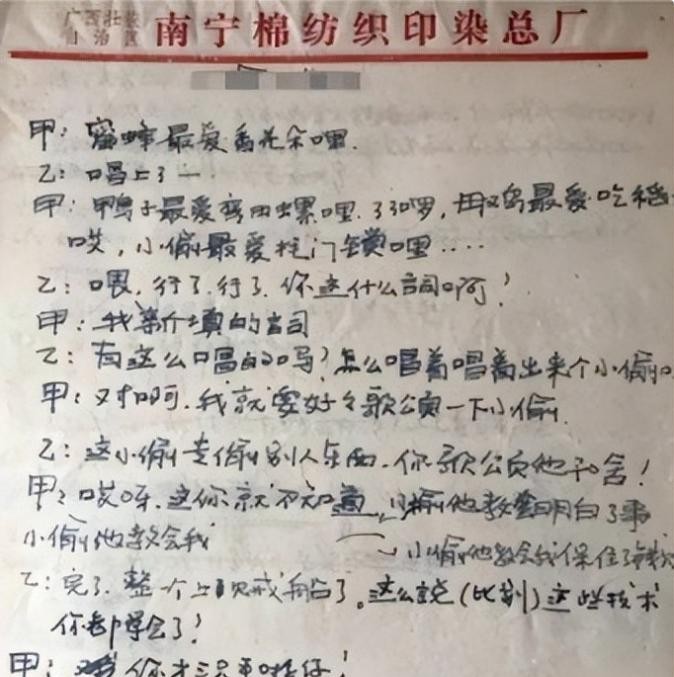 广西壮族
自治区 南宁棉纺织印染总厂
甲：蜜蜂最爱看花朵哩.
乙：唱上了一
甲：鸭子最爱弯田螺哩.了了啰,
哎,小偷最爱拦门锁哩……
乙：喂,行了.行了.你这什么词啊！
甲：我新填的词
乙：有这么唱的吗？怎么唱着唱着出来个小偷
甲：对啊.我就要好好歌颂一下小偷.
乙：这小偷专偷别人东西.你歌颂他干啥！
甲：哎呀.这你就不知道 小偷他教会明白了事
小偷他教会我 小偷他教会我保住了
乙：完了.整一个上贼船了。这么说(比划)这些技术
你都学会了！
甲： 你才三只手